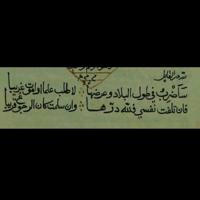 لله در القائل
سأضرب في طول البلاد وعرضها لاطلب علما او اموت غريبا
فان تلفت نفسي فلله درها وان سلمت كان الرجوع قريبا